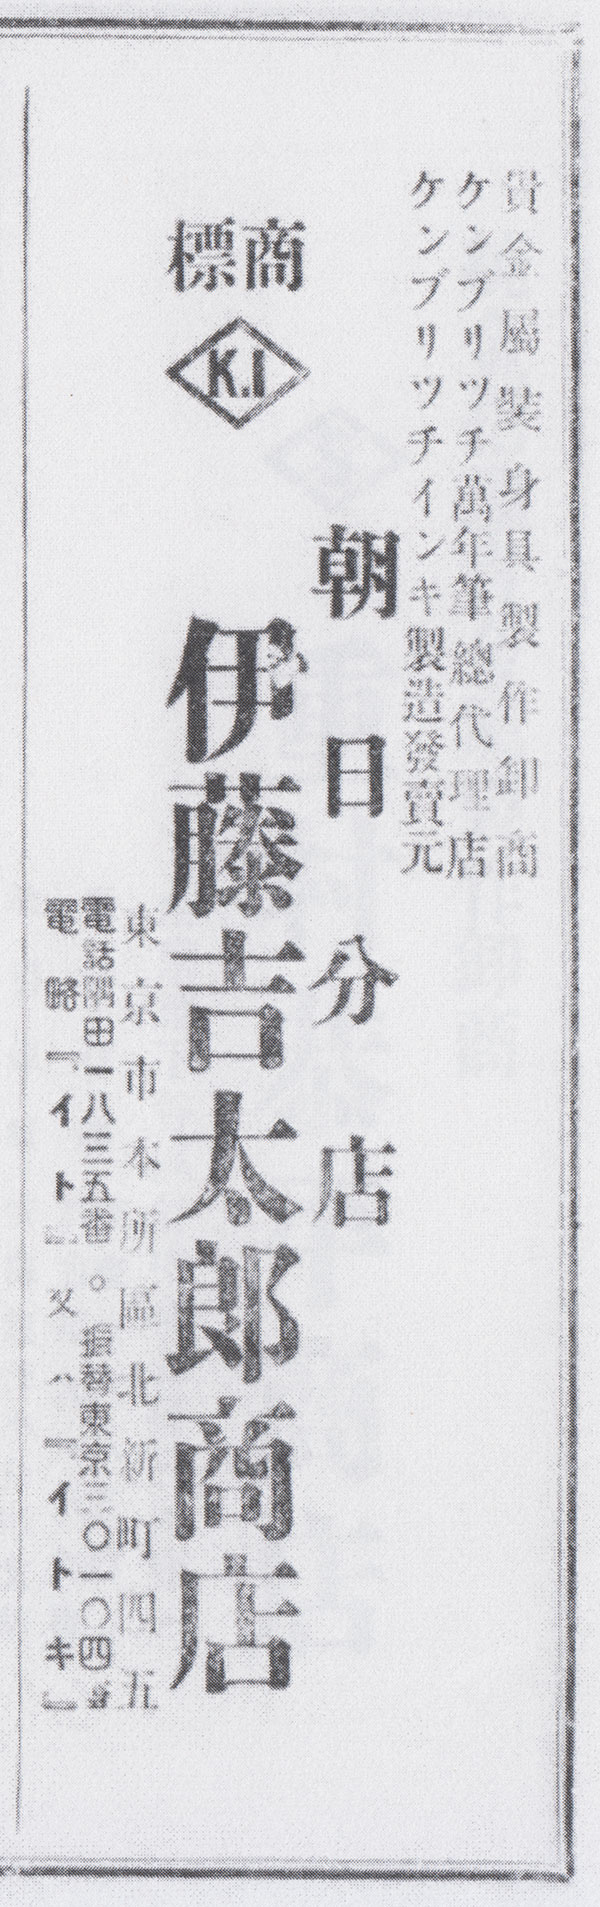 貴金屬裝身具製作卸商
ケンブリツチ萬年筆總代理店
ケンブリツチインキ製造發賣元
朝日分店
商標
K.I
伊藤吉太郎商店
東京市本所區北新町四五
電話隅田一八三五番。振替東京三〇一〇四番
電略『イト』又ハ『イトキ』